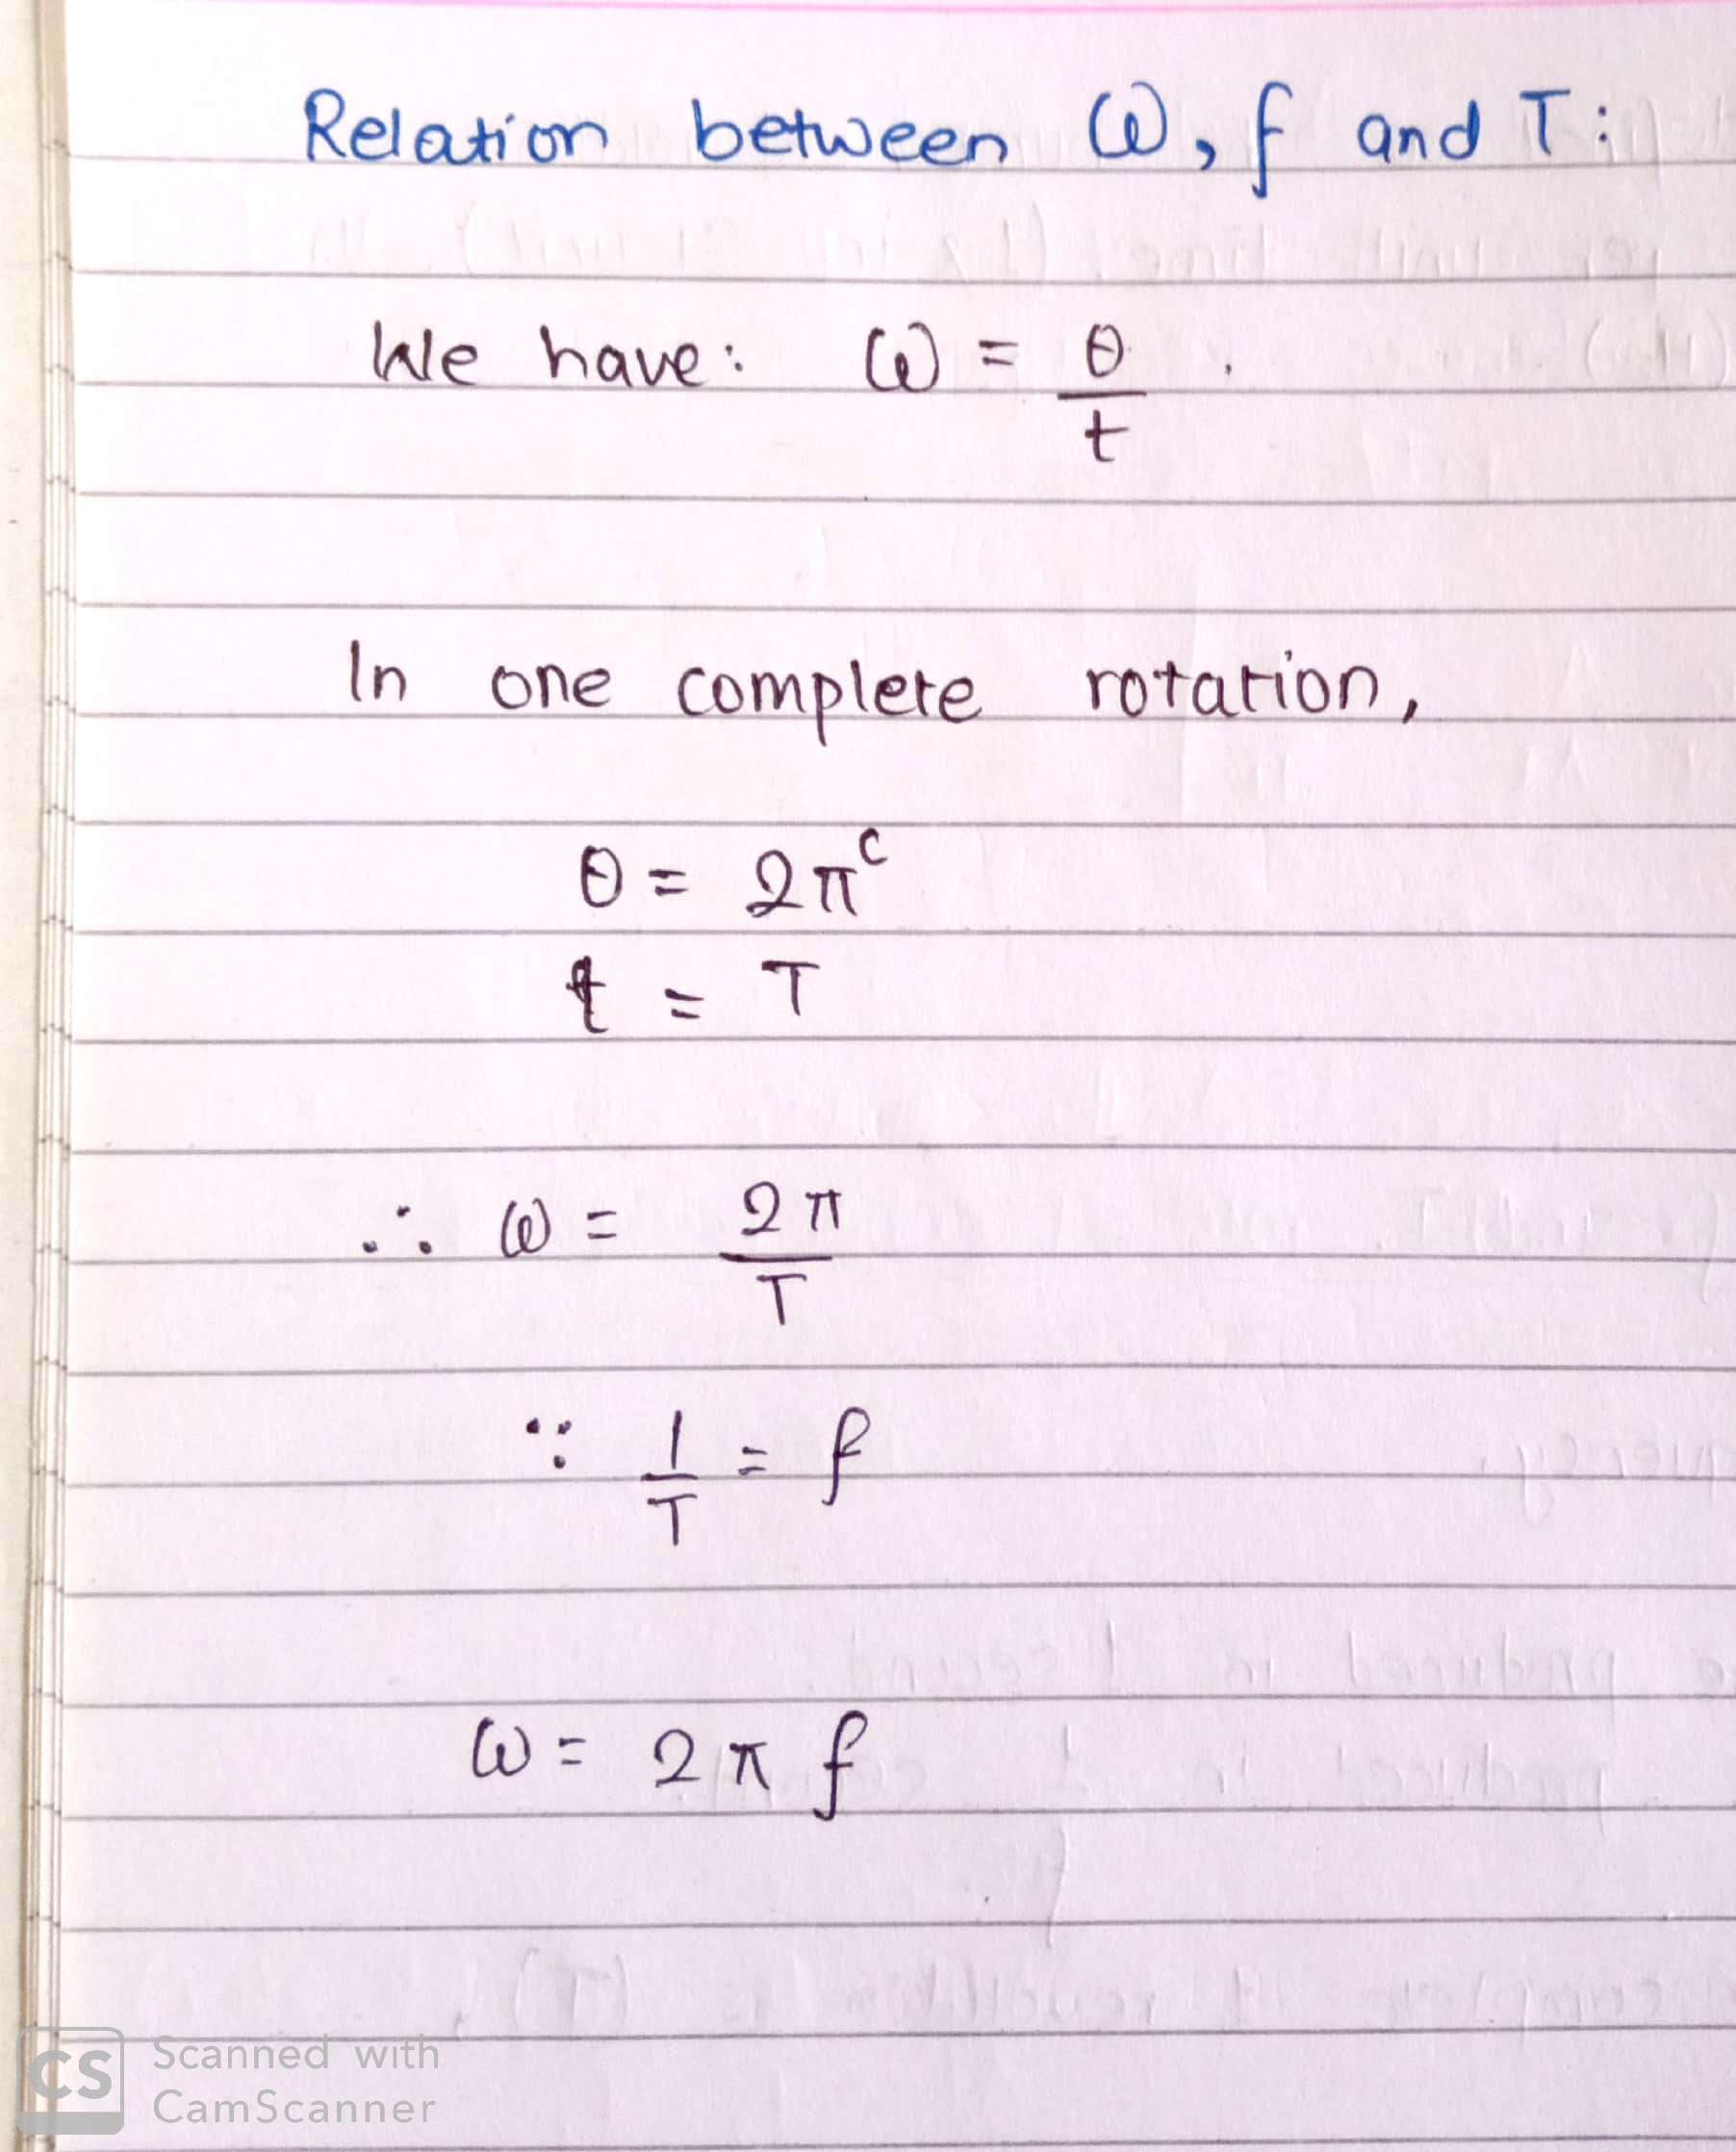 Relation between ω, f and T:
We have: ω = θ/t
In one complete rotation,
θ = 2πᶜ
t = T
∴ ω = 2π/T
∵ 1/T = f
ω = 2πf
CS Scanned with
CamScanner